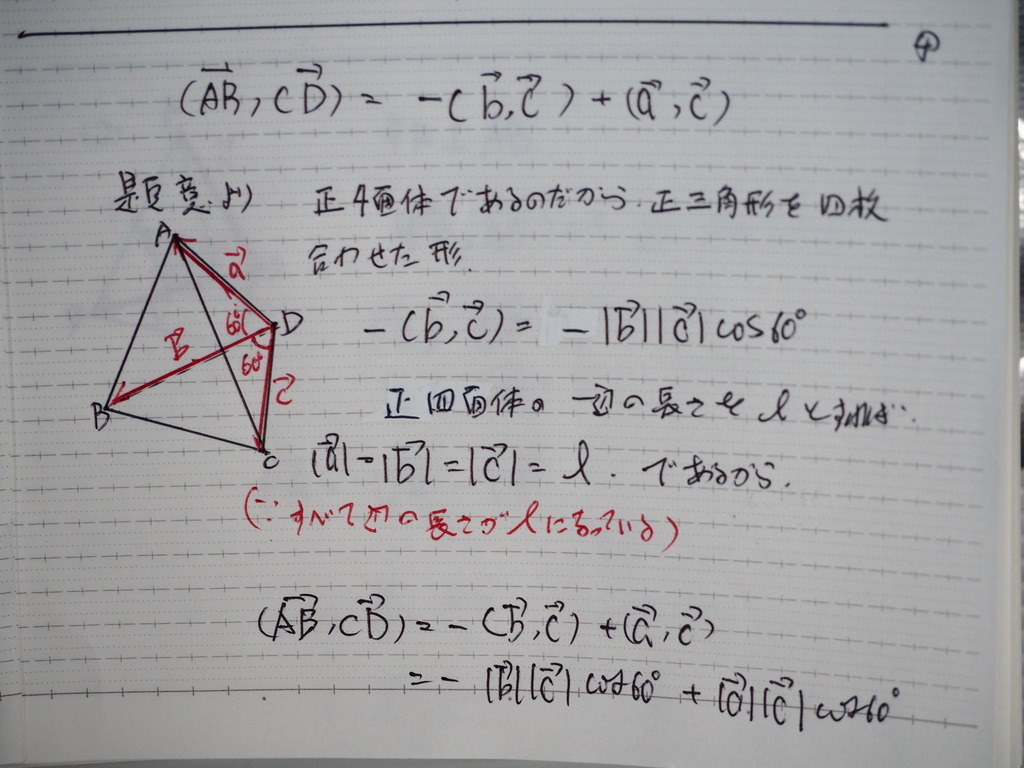 ④
(AB→, CD→) = -(b→, c→) + (a→, c→)
題意より 正4面体であるのだから、正三角形を四枚
合わせた形.
A
a→
60°
D
-(b→, c→) = -|b→||c→| cos60°
b→
60°
c→
正四面体の一辺の長さをlとすれば.
B
C
|a→| = |b→| = |c→| = l. であるから.
(∵すべて辺の長さがlになっている)
(AB→, CD→) = -(b→, c→) + (a→, c→)
= -|b→||c→| cos60° + |a→||c→| cos60°